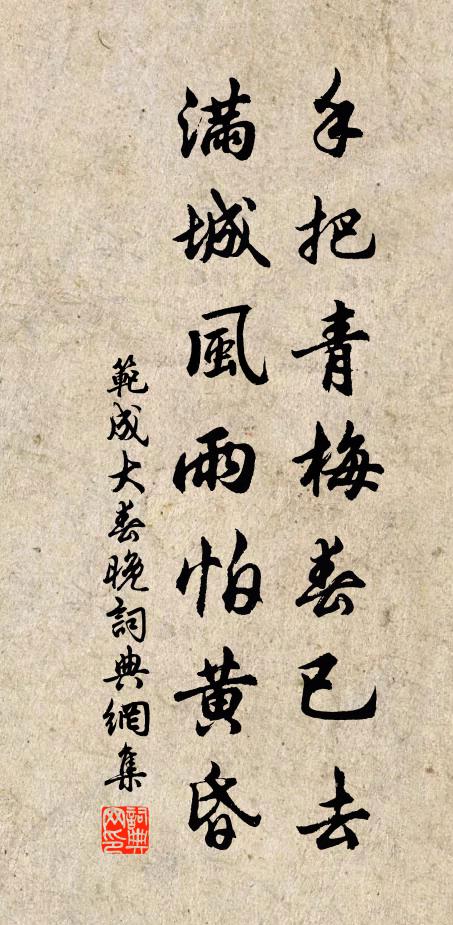 手把青梅春已去
滿城風雨怕黃昏
範成大春晚詞典網集
詞典
网印